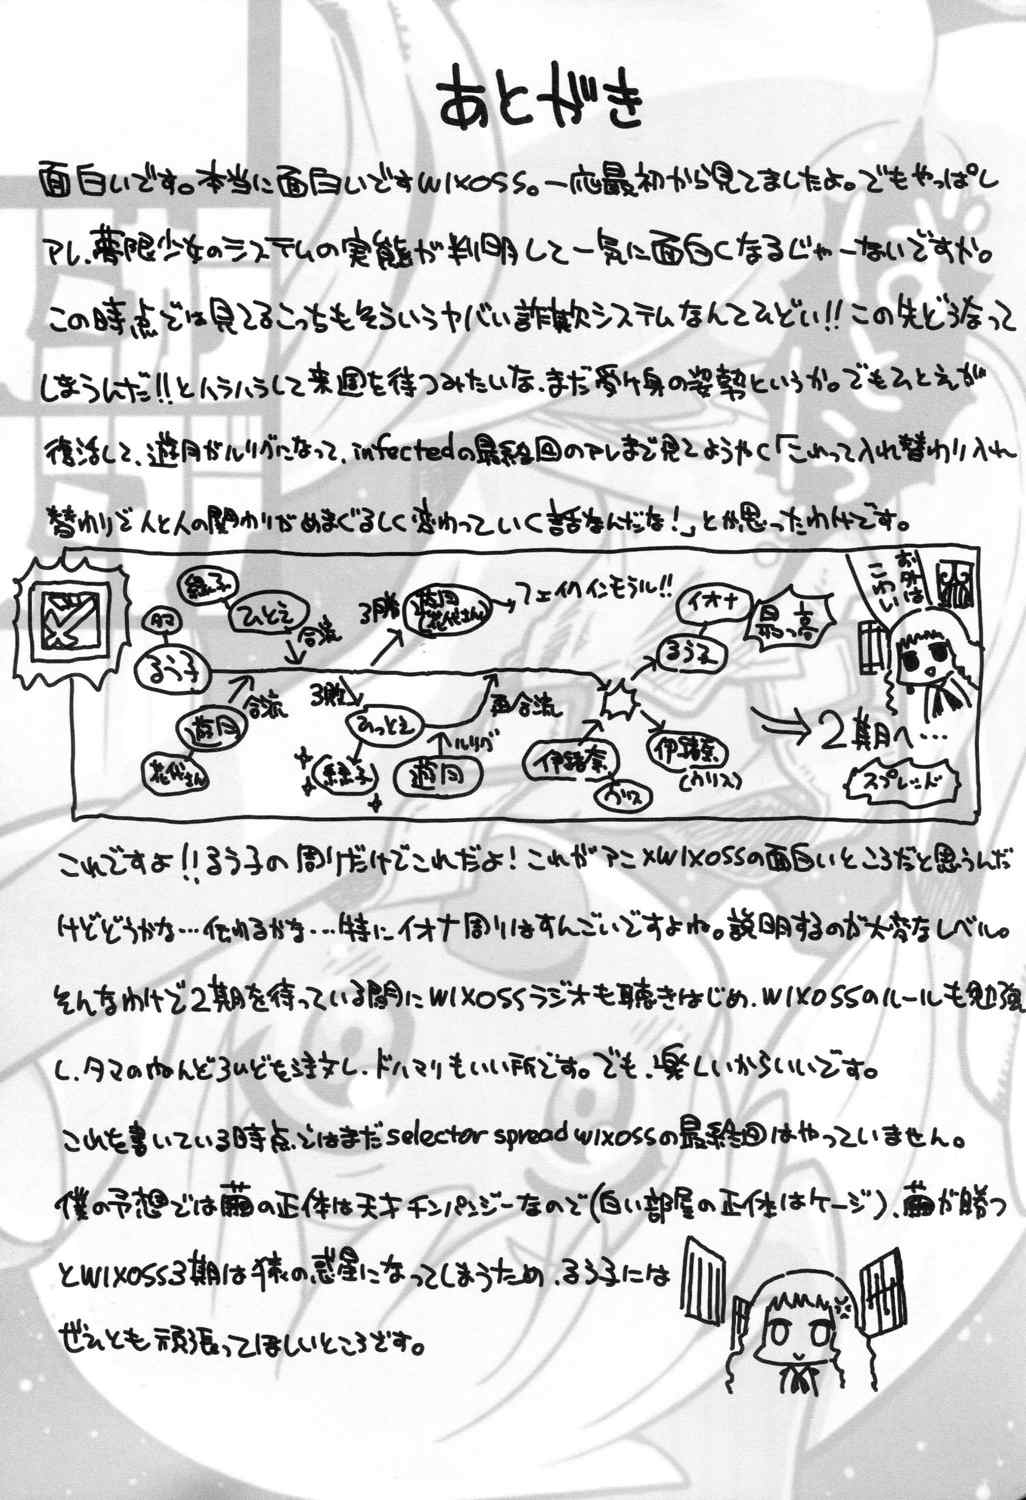 あとがき
面白いです。本当に面白いですWIXOSS。一応最初から見てましたよ。でもやっぱし
アレ、夢限少女のシステムの実態が判明して一気に面白くなるじゃーないですか。
この時点では見てるこっちもそういうヤバい詐欺システムなんてひどい!!この先どうなって
しまうんだ!!とハラハラして来週を待つみたいな、まだ受け身の姿勢というか。でもひとえが
復活して、遊月がルリグになって、infectedの最終回のアレまで見てようやく「これって入れ替わり入れ
替わりで人と人の関わりがめまぐるしく変わっていく話なんだな!」とか思ったわけです。
緑子
ひとえ
合流
タマ
るう子
遊月
花代さん
合流
3勝
遊月
(花代さん)
フェイクインモラル!!
3敗
ひっとえ
緑子
ルリグ
遊月
再合流
伊緒奈
ウリス
イオナ
るう子
最っ高
伊緒奈
(ウリス)
2期へ…
スプレッド
お外は
こわい
これですよ!!るう子の周りだけでこれだよ!これがアニメWIXOSSの面白いところだと思うんだ
けどどうかな…伝わるかな…特にイオナ周りはすんごいですよね。説明するのが大変なレベル。
そんなわけで2期を待っている間にWIXOSSラジオも聴きはじめ、WIXOSSのルールも勉強
し、タマのねんどろいどを注文し、ドハマリもいい所です。でも、楽しいからいいです。
これを書いている時点ではまだselector spread wixossの最終回はやっていません。
僕の予想では繭の正体は天才チンパンジーなので(白い部屋の正体はケージ)、繭が勝つ
とWIXOSS3期は猿の惑星になってしまうため、るう子には
ぜひとも頑張ってほしいところです。